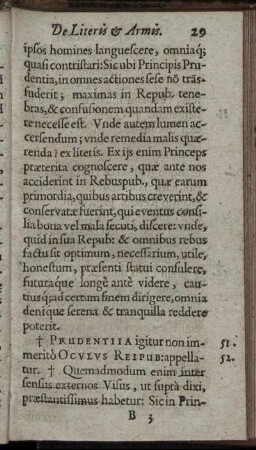 De Literis & Armis. 29
ipsos homines languescere, omniaq́;
quasi contristari: Sic ubi Principis Pru-
dentia, in omnes actiones sese nō trās-
fuderit; maximas in Repub. tene-
bras, & confusionem quandam existe-
re necesse est. Vnde autem lumen ac-
cersendum; vnde remedia malis quæ-
renda? ex literis. Ex ijs enim Princeps
præterita cognoscere, quæ ante nos
acciderint in Rebuspub., quæ earum
primordia, quibus artibus creverint, &
conservatæ fuerint, qui eventus consi-
lia bona vel mala secuti, discere: vnde,
quid in sua Repub: & omnibus rebus
factu sit optimum, necessarium, utile,
honestum, præsenti statui consulere,
futuraque longè antè videre, cau-
tiusq́; ad certum finem dirigere, omnia
denique serena & tranquilla reddere
poterit.
† PRUDENTIIA igitur non im- 51.
meritò OCVLVS REIPUB: appella- 52.
tur. † Quemadmodum enim inter
sensus externos Visus, ut suprà dixi,
præstantissimus habetur: Sic in Prin-
B 3